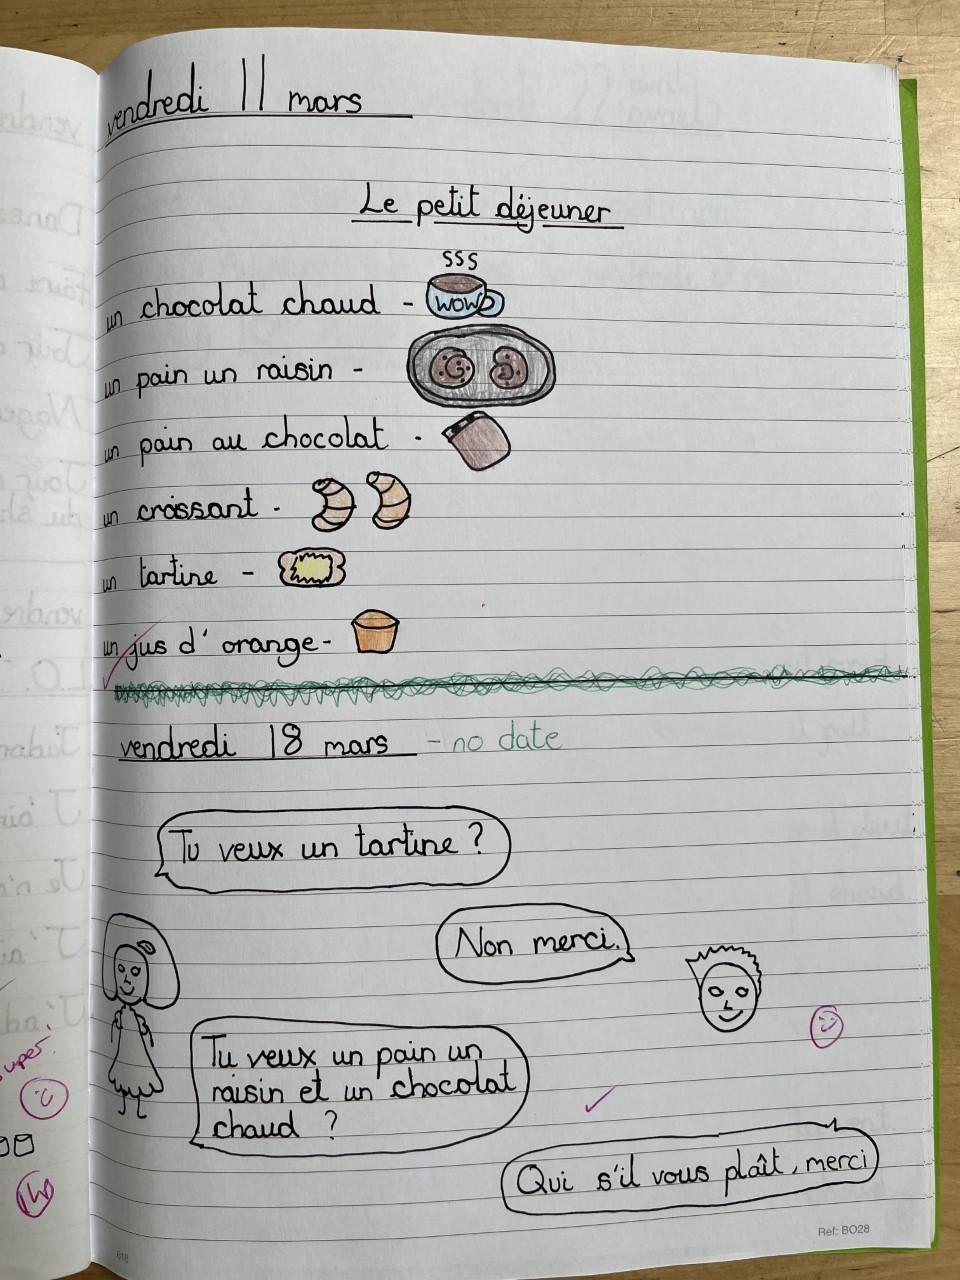 vendredi 11 mars
Le petit déjeuner
SSS
un chocolat chaud -
WOW
un pain un raisin -
un pain au chocolat -
un croissant -
un tartine -
un jus d'orange -
vendredi 18 mars - no date
Tu veux un tartine ?
Non merci.
Tu veux un pain un
raisin et un chocolat
chaud ?
Qui s'il vous plaît, merci
Ref: BO28
618